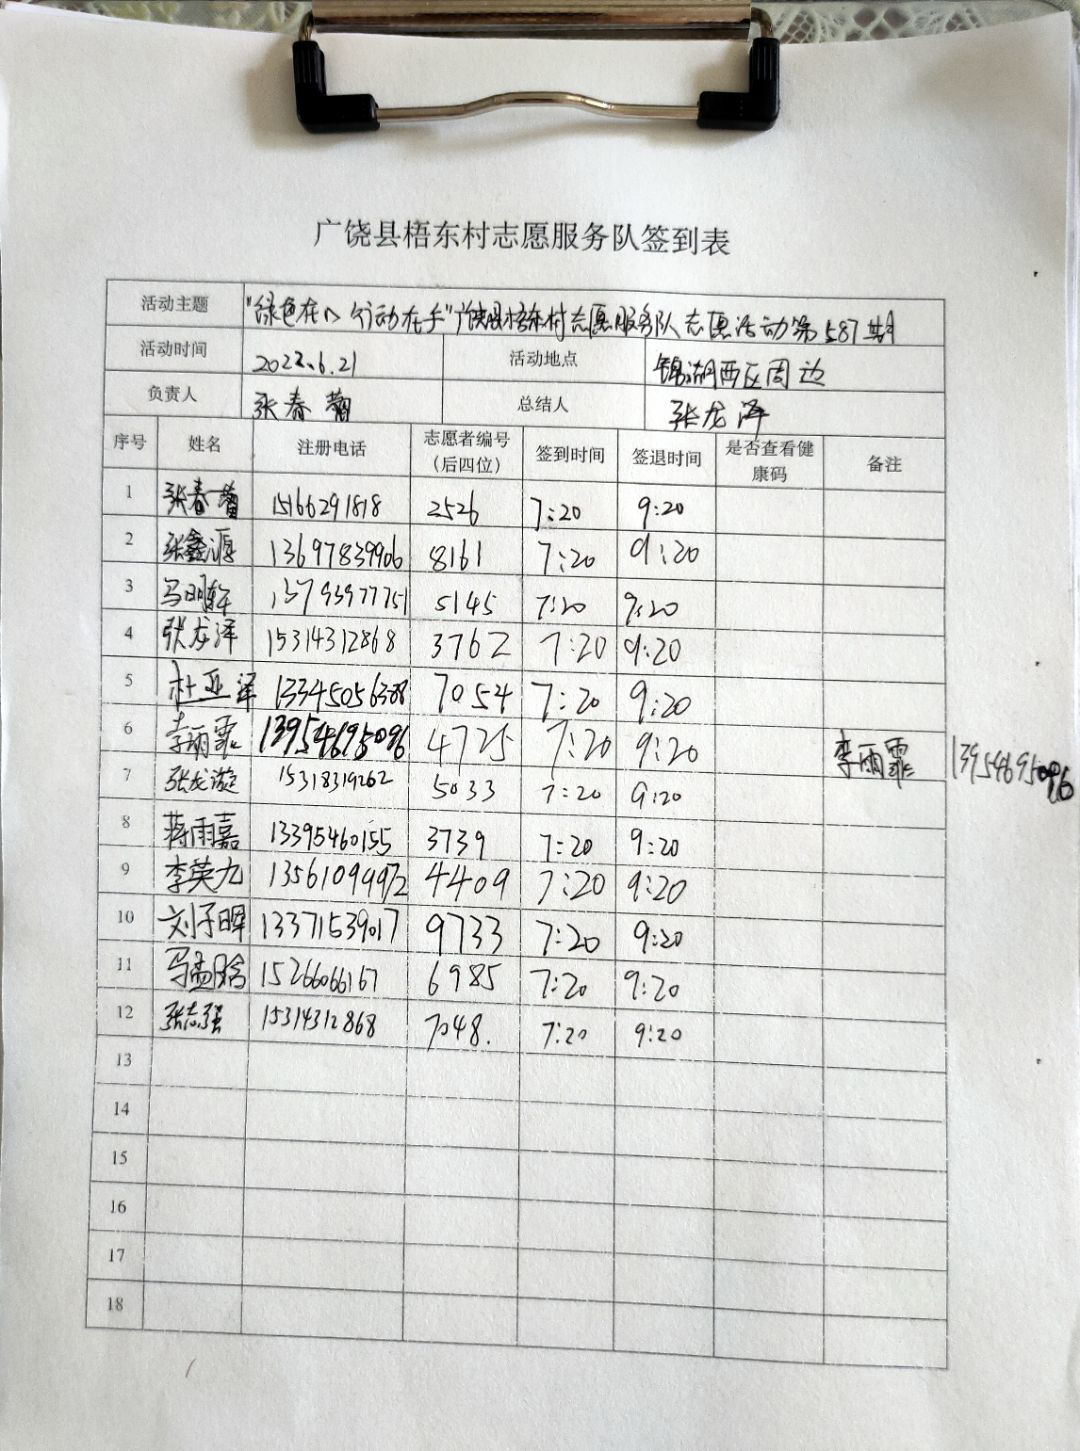 广饶县梧东村志愿服务队签到表
活动主题 "绿色在心 行动在手"广饶县梧东村志愿服务队志愿活动第587期
活动时间 2022.6.21 活动地点 锦湖西区周边
负责人 张春 总结人 张龙泽
序号 姓名 注册电话 志愿者编号(后四位) 签到时间 签退时间 是否查看健康码 备注
1 张春 15166291818 2526 7:20 9:20
2 张鑫源 13697839906 8161 7:20 9:20
3 马明轩 13793977751 5145 7:20 9:20
4 张龙泽 15314312868 3762 7:20 9:20
5 杜亚泽 13345056388 7054 7:20 9:20
6 李雨霏 13954695096 4725 7:20 9:20 李雨霏 13954695096
7 张龙 15318319262 5033 7:20 9:20
8 蒋雨嘉 13395460155 3739 7:20 9:20
9 李英九 13561099972 4409 7:20 9:20
10 刘子晖 13371539017 9733 7:20 9:20
11 马孟晗 15266066167 6985 7:20 9:20
12 张志强 15314312868 7048. 7:20 9:20
13
14
15
16
17
18